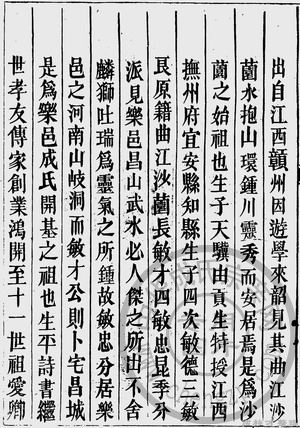 出自江西贛州因遊學來韶見其曲江沙
薗水抱山環鍾川靈秀而安居焉是爲沙
薗之始祖也生子天驥由貢生特授江西
撫州府宜安縣知縣生子四次敏德三敏
艮原籍曲江沙薗長敏才四敏忠昆季分
派見樂邑昌山武水必人傑之所出不舍
麟獅吐瑞爲靈氣之所鍾故敏忠分居樂
邑之河南山岐洞而敏才公則卜宅昌城
是爲樂邑成氏開基之祖也生平詩書繼
世孝友傳家創業鴻開至十一世祖愛卿